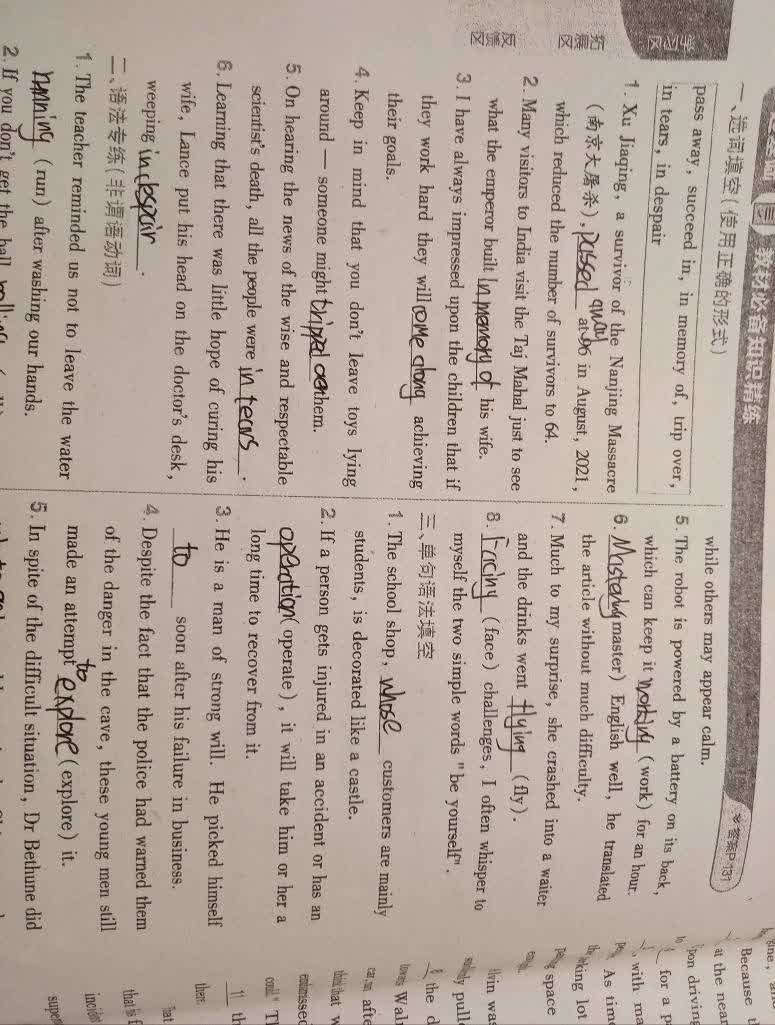 学习区
拓展区
反馈区
教材必备知识精练
答案P 131
一、选词填空(使用正确的形式)
pass away, succeed in, in memory of, trip over,
in tears, in despair
1. Xu Jiaqing, a survivor of the Nanjing Massacre
(南京大屠杀), passed away at 96 in August, 2021,
which reduced the number of survivors to 64.
2. Many visitors to India visit the Taj Mahal just to see
what the emperor built in memory of his wife.
3. I have always impressed upon the children that if
they work hard they will come along achieving
their goals.
4. Keep in mind that you don't leave toys lying
around — someone might them.
5. On hearing the news of the wise and respectable
scientist's death, all the people were in tears.
6. Learning that there was little hope of curing his
wife, Lance put his head on the doctor's desk,
weeping in despair.
二、语法专练(非谓语动词)
1. The teacher reminded us not to leave the water
running (run) after washing our hands.
2. If you don't get the ball
while others may appear calm.
5. The robot is powered by a battery on its back,
which can keep it working (work) for an hour.
6. Mastering (master) English well, he translated
the article without much difficulty.
7. Much to my surprise, she crashed into a waiter
and the drinks went flying (fly).
8. Facing (face) challenges, I often whisper to
myself the two simple words "be yourself".
三、单句语法填空
1. The school shop, whose customers are mainly
students, is decorated like a castle.
2. If a person gets injured in an accident or has an
operation (operate), it will take him or her a
long time to recover from it.
3. He is a man of strong will. He picked himself
to soon after his failure in business.
4. Despite the fact that the police had warned them
of the danger in the cave, these young men still
made an attempt to explore (explore) it.
5. In spite of the difficult situation, Dr Bethune did
Because
at the near
for a p
with ma
As tim
king lot
space
was
pull
the d
Wal
afte